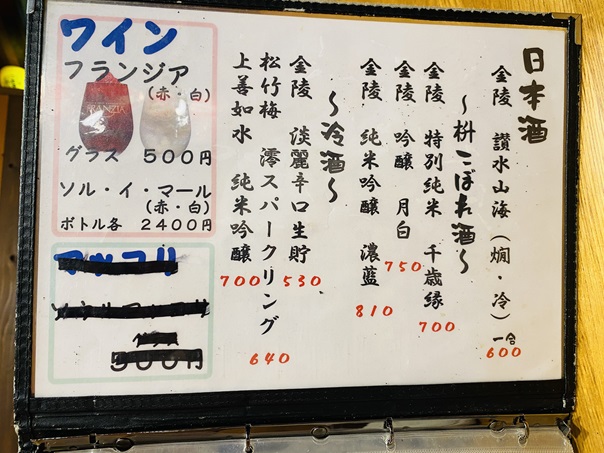 日本酒
金陵 讃水山海(燗・冷)
一合
600
～枡こぼれ酒～
金陵 特別純米 千歳緑
700
金陵 吟醸 月白
750
金陵 純米吟醸 濃藍
810
～冷酒～
金陵 淡麗辛口生貯
530
松竹梅 澪スパークリング
640
上善如水 純米吟醸
700
ワイン
フランジア
(赤・白)
FRANZIA
グラス 500円
ソル・イ・マール
(赤・白)
ボトル各 2400円
マッコリ
500円